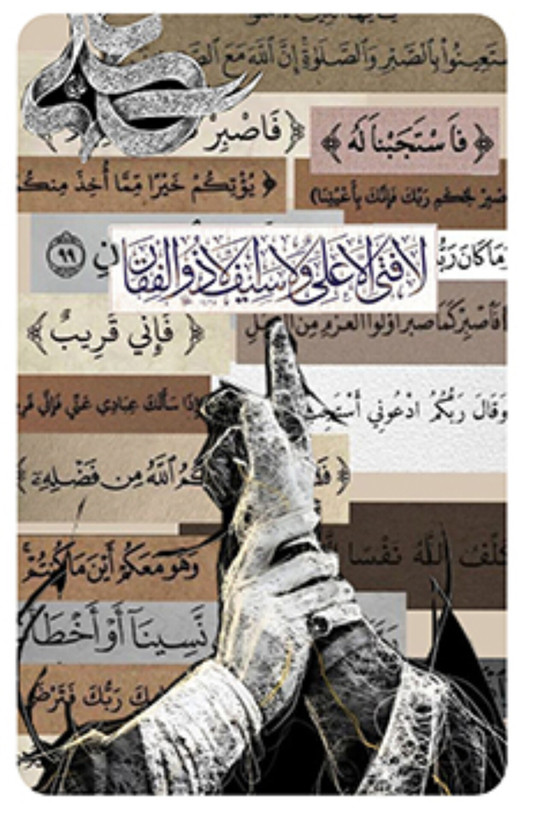 ستعينوا بالصبر والصلوة إن الله مع
﴿ فَاصْبِرْ
﴿ فَاسْتَجَبْنَا لَهُ ﴾
﴿ يُؤْتِكُمْ خَيْرًا مِّمَّا أُخِذَ مِنكُمْ
صبر لحكم ربك فإنك بأعيننا)
٩٩
مَا كَانَ رَبُّ
لا فتى إلا علي ولا سيف إلا ذو الفقار
﴿ فَإِنِّي قَرِيبٌ ﴾
فَاصْبِرْ كَمَا صَبَرَ أُولُوا الْعَزْمِ مِنَ
إِذَا سَأَلَكَ عِبَادِي عَنِّي فَإِنِّي قَرِ
وَقَالَ رَبُّكُمُ ادْعُونِي أَسْتَجِبْ
اللَّهُ مِن فَضْلِهِ ﴾
كَلِّفُ اللَّهُ نَفْسًا
وَهُوَ مَعَكُمْ أَيْنَ مَا كُنتُمْ
نَّسِينَا أَوْ أَخْطَأْ
رَبُّكَ فَتَرْضَ